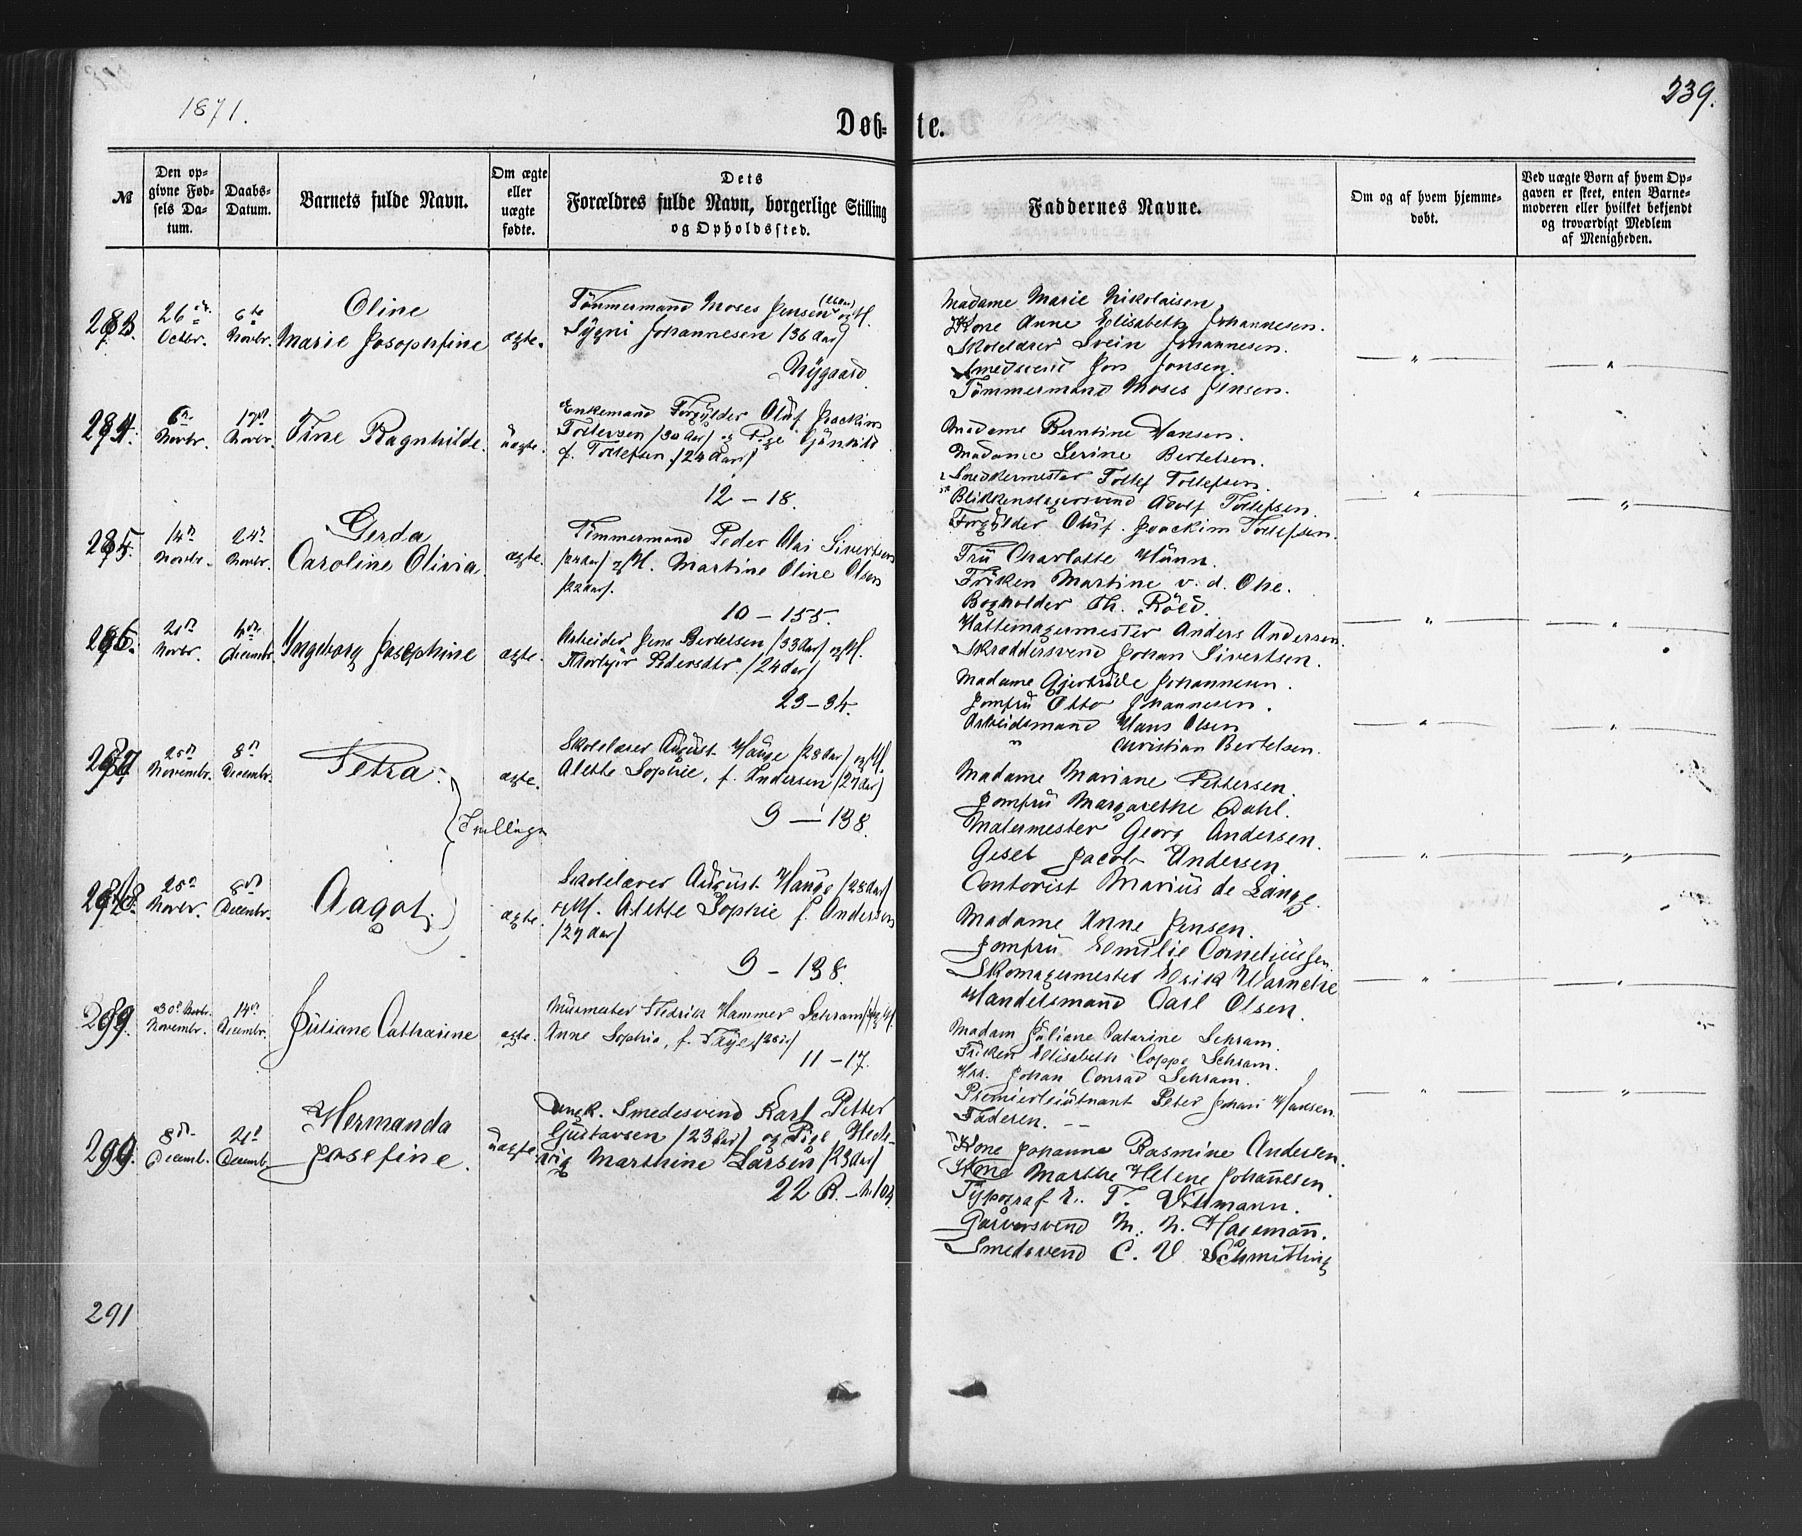 1871.
239.
Døb-te.
№
Den op-
givne Fød-
sels Da-
tum.
Daabs-
Datum.
Barnets fulde Navn.
Om ægte
eller
uægte
fødte.
Dets
Forældres fulde Navn, borgerlige Stilling
og Opholdssted.
Faddernes Navne.
Om og af hvem hjemme-
døbt.
Ved uægte Børn af hvem Op-
gaven er skeet, enten Barne-
moderen eller hvilket bekjendt
og troværdigt Medlem
af Menigheden.
283
26
Octbr.
6te
Novbr.
Oline
Marie Josephine
ægte.
Tömmermand Moses Jensen og M.
Johannesen /36 Aar/
Nÿgaard
Madame Marie Nikolaisen
Kone Anne Elisabeth Johannesen.
Skolelærer Svein Johannesen.
Smedsvend Jon Jonsen.
Tömmermand Moses Jensen.
284.
6
Novbr.
17
Novbr.
Tine Ragnhilde.
uægte.
Enkemand Forgÿlder Oluf Joackim
Tollefsen /30 Aar/ og Pge Günhild
f. Tollefsen /24 Aar/
12 - 18.
Madame Berntine Hansen.
Madame Serine Bertelsen.
Snedkermester Tollef Tollefsen.
Blikkenslagersvend Adolf Tollefsen.
Forgÿlder Oluf Joackim Tollefsen.
285.
14
Novbr.
24
Novbr.
Gerda
Caroline Olivia
ægte.
Tömmermand Peder Olai Sivertsen
/22 Aar/ og M. Martine Oline Olsen
/22 Aar/.
10 - 155.
Frü Charlotte Münn.
Fröken Martine v. d. Ohe.
Bogholder Th. Röld.
Hattemagermester Anders Andersen
Skræddersvend Johan Sivertsen.
286.
21
Novbr.
Decembr.
Ingeborg Josephine
ægte.
Arbeider Jens Bertelsen /33 Aar/ og M.
Pedersdtr /24 Aar/
23 - 34.
Madame Gjertrüde Johannesen.
Jomfrü Otto Johannesen.
Arbeidsmand Hans Olsen
" Christian Bertelsen.
287
25
Novembr.
8
Decembr.
Petra.
ægte.
Skolelærer Aügüst Haüge /28 Aar/ og M.
Alette Sophie, f. Andersen /27 Aar/
9 - 138.
Tvillinger
Madame Mariane Pettersen.
Jomfrü Margarethe Dahl.
Malermester Georg Andersen.
Gesel Jacob Andersen.
Contorist Mariüs de Lange.
288.
25
Novbr.
8
Decembr.
Aagot.
ægte.
Skolelærer Aügüst Haüge /28 Aar/
og M. Alette Sophie f. Andersen
/27 Aar/
9 - 138.
Madame Anne Jensen.
Jomfrü Emilie Corneliüssen
Skomagermester Erik Warncke
Handelsmand Carl Olsen.
289.
Novembr.
14
Decembr.
Jüliane Catharine
ægte.
Mürmester Fredrik Hammer Schram og M.
Anne Sophie, f.
11 - 17.
Madam Jüliane Catarine Schram.
Fröken Elisabeth Coppe Schram.
Hrr. Johan Conrad Schram.
Premierleiütnant Peter Johan Hansen.
Faderen.
290.
8
Decemb.
21
Decemb.
Hermanda
Josefine.
üægte
Ungk. Smedesvend Karl Petter
Güstavsen /23 Aar/ og Pige Hed-
vig Marthine Larsen /23 Aar/
22 R. - N. 104
Kone Johanne Rasmine Andersen.
Kone Marthe Helene Johañesen.
Tÿpograf E. T. Villmann.
Garversvend M. N. Hagemañ.
Smedsvend C. V. Schmitling
291